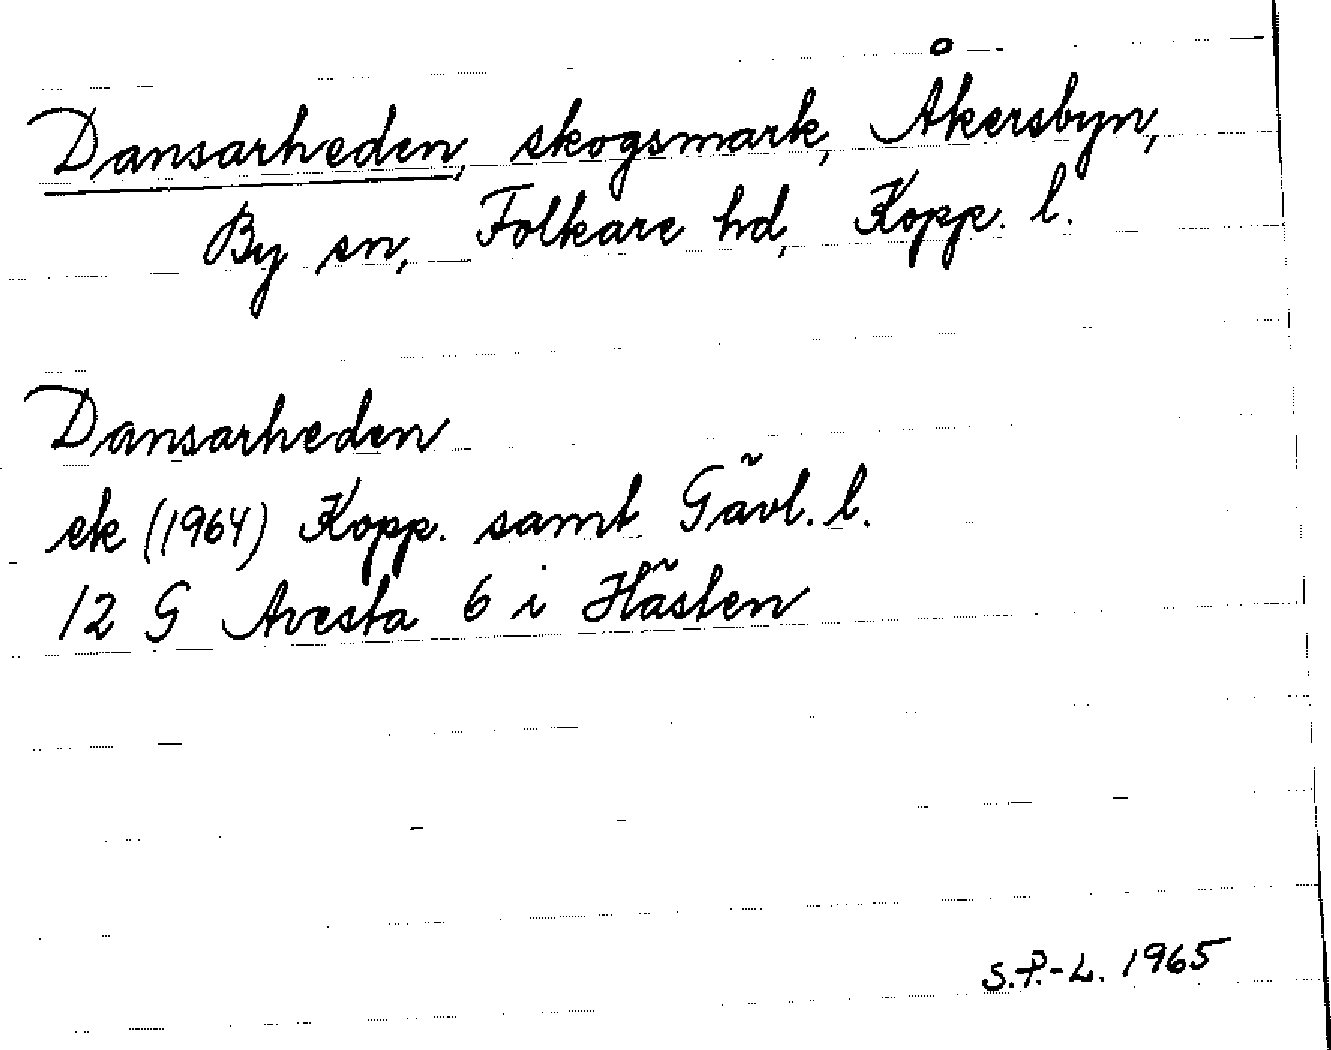 Dansarheden, skogsmark, Åkersbyn,
By sn, Folkare hd, Kopp. l.
Dansarheden
ek (1964) Kopp. samt Gävl. l.
12 G Avesta 6 i Hästen
S.P.-L. 1965